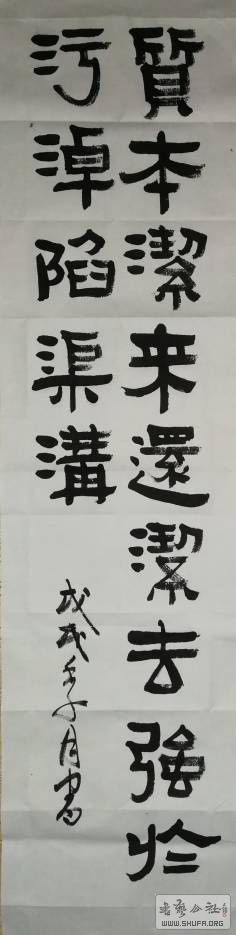 質本潔来還潔去強於
污淖陷渠溝
戊戌子月書
書藝公社
WWW.SHUFA.ORG